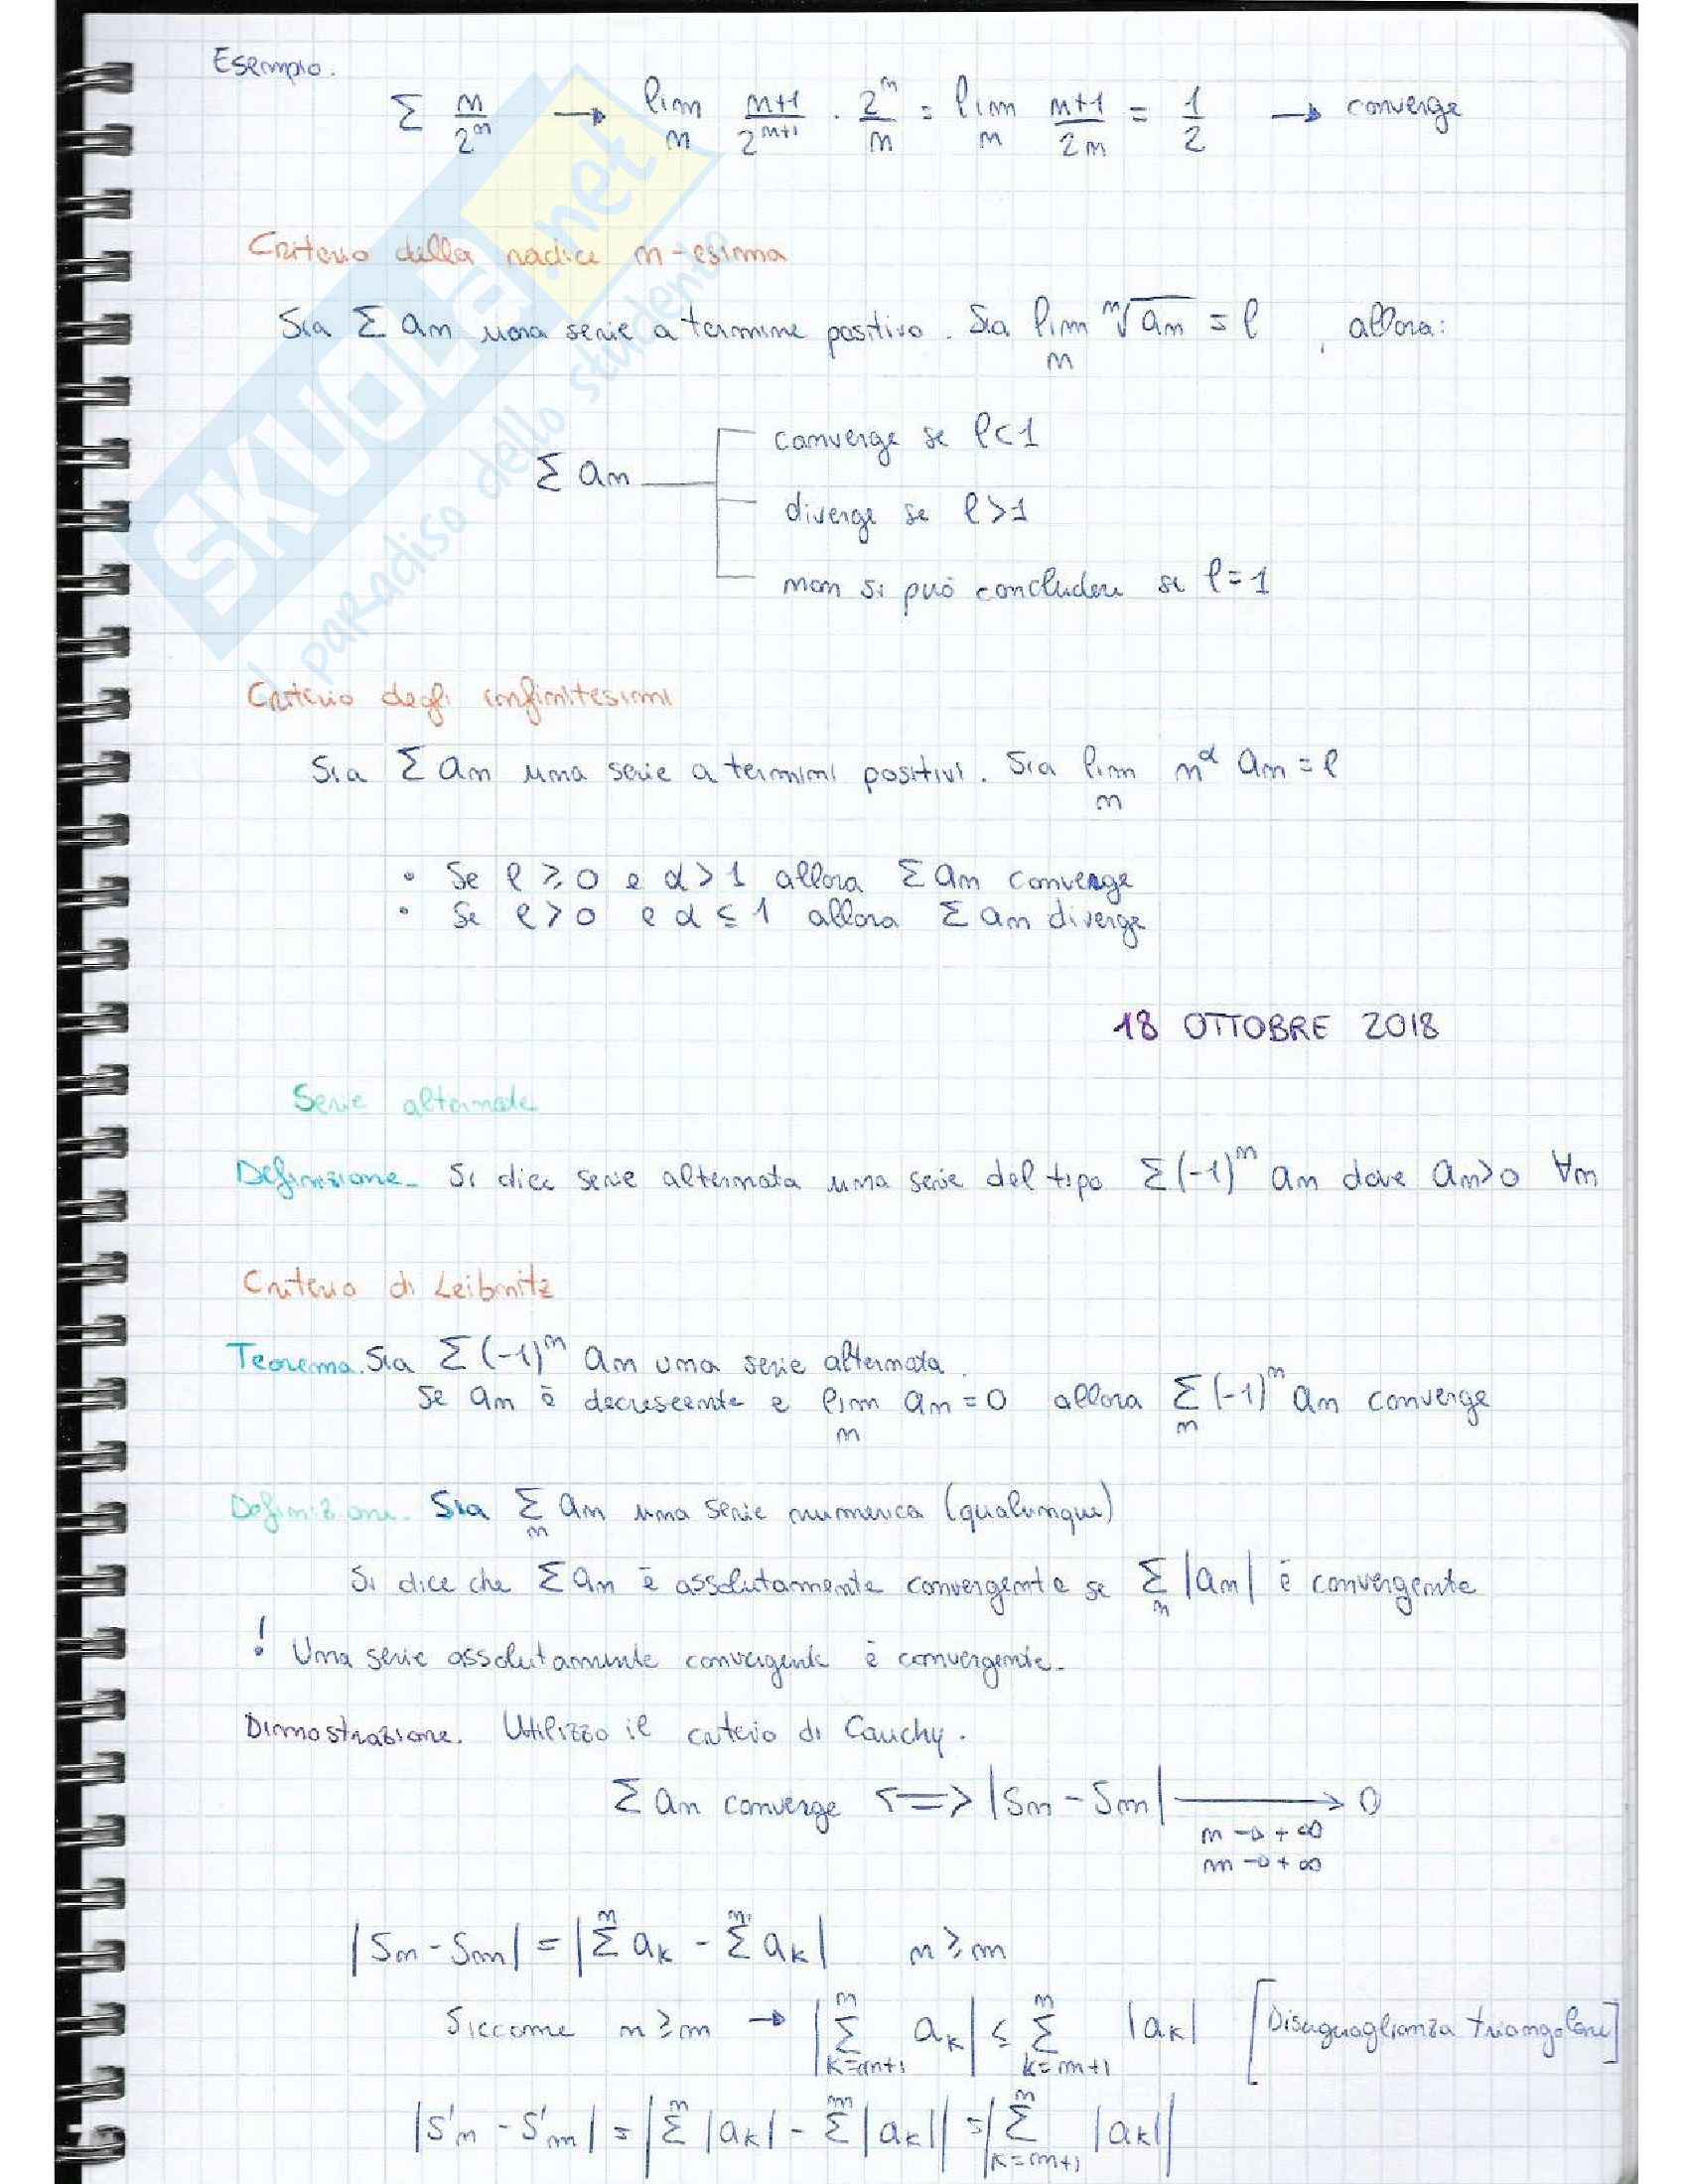 Esempio.
Σ n/2^n → lim_n (n+1)/2^(n+1) · 2^n/n = lim_n (n+1)/2n = 1/2 → converge
Criterio della radice n-esima
Sia Σ an una serie a termine positivo. Sia lim_n ⁿ√an = l , allora:
converge se l<1
Σ an
diverge se l>1
non si può concludere se l=1
Criterio degli infinitesimi
Sia Σ an una serie a termini positivi. Sia lim_n n^α an = l
• Se l ≥ 0 e α > 1 allora Σ an converge
• Se l > 0 e α ≤ 1 allora Σ an diverge
18 OTTOBRE 2018
Serie alternate
Definizione. Si dice serie alternata una serie del tipo Σ(-1)^n an dove an>0 ∀n
Criterio di Leibnitz
Teorema. Sia Σ(-1)^n an una serie alternata.
Se an è decrescente e lim_n an = 0 allora Σ_n (-1)^n an converge
Definizione. Sia Σ_n an una serie numerica (qualunque)
Si dice che Σ an è assolutamente convergente se Σ_n |an| è convergente
! Una serie assolutamente convergente è convergente.
Dimostrazione. Utilizzo il criterio di Cauchy.
Σ an converge <=> |Sn - Sm| → 0
n → +∞
m → +∞
|Sn - Sm| = |Σ^n ak - Σ^m ak| n ≥ m
Siccome n ≥ m → |Σ^n_(k=m+1) ak| ≤ Σ^n_(k=m+1) |ak| [Disuguaglianza triangolare]
|S'n - S'm| = |Σ^n |ak| - Σ^m |ak|| = |Σ^n_(k=m+1) |ak||
SKUOLA.net
il paradiso dello studente